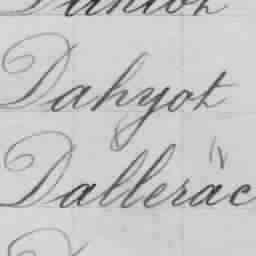 Dahyot
Dallerac